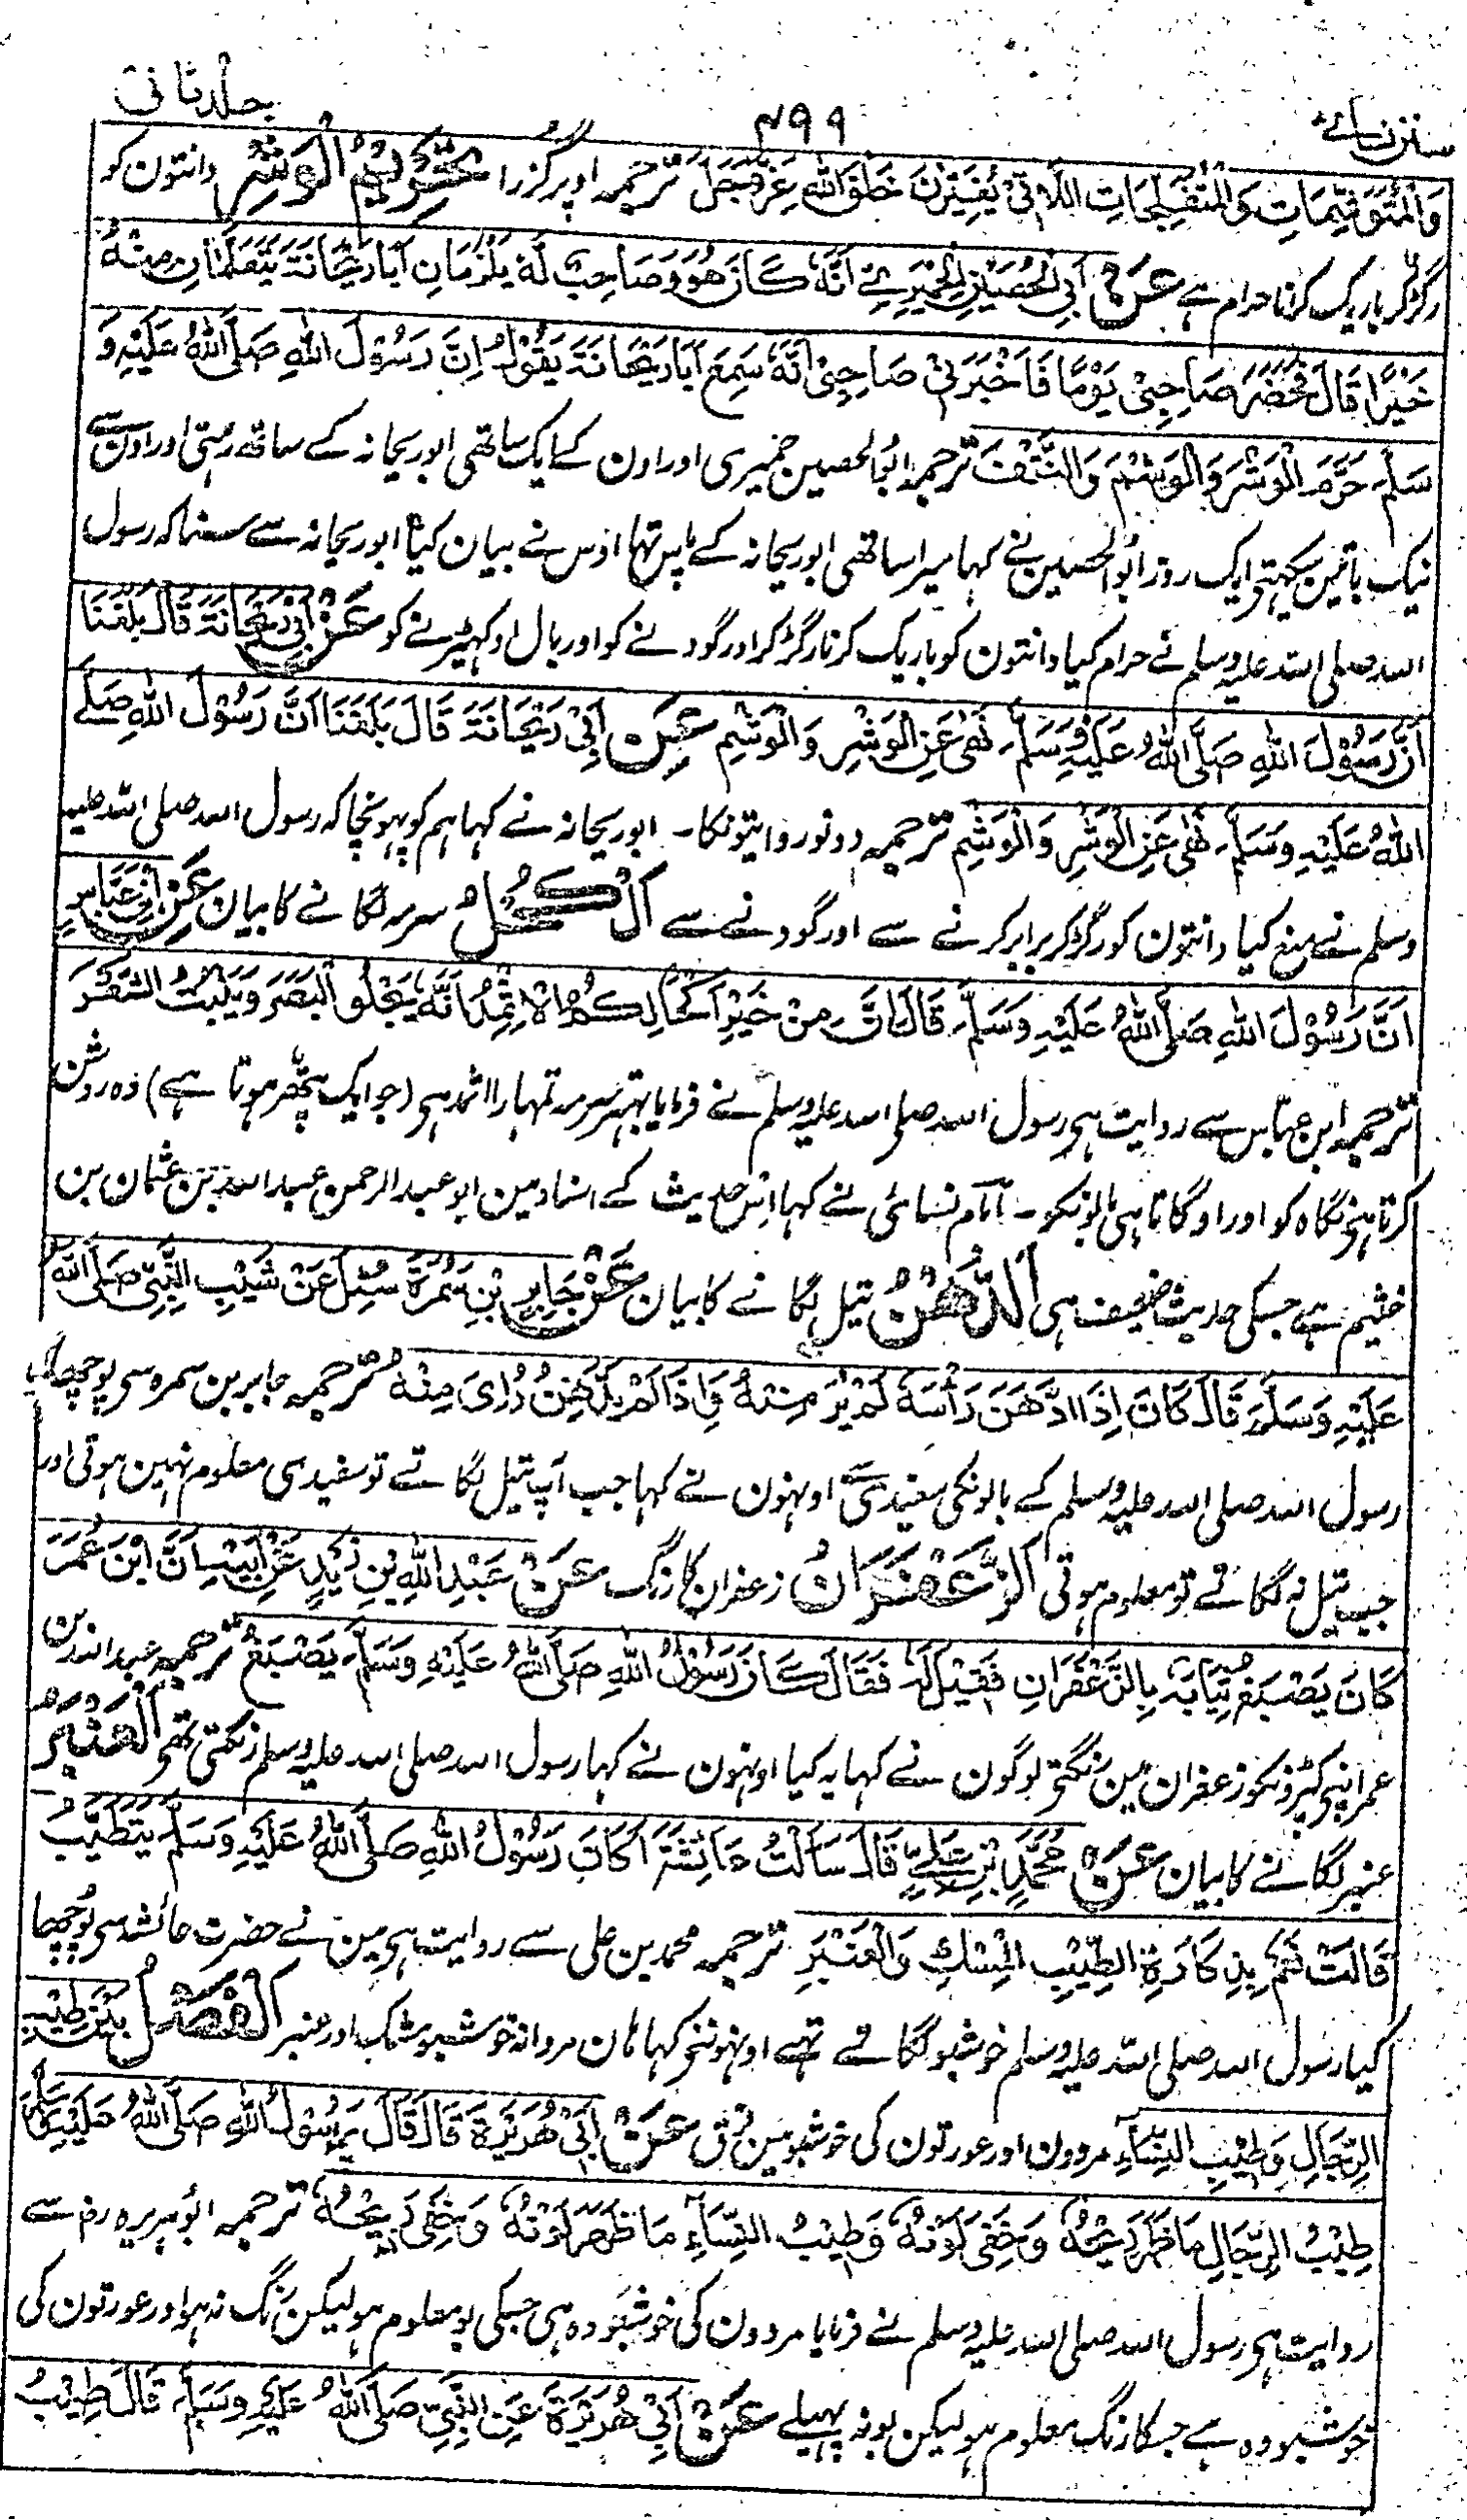 سنن نسائے ۴۹۹ جلد ثانی
وَالْمُتَوَشِّمَاتِ وَالْمُتَفَلِّجَاتِ اللَّاتِيْ يُغَيِّرْنَ خَلْقَ اللهِ عَزَّ وَجَلَّ ترجمہ اوپر گزرا تَحْرِيْمُ الْوَشْرِ دانتون کو
رگڑ کر باریک کرنا حرام ہے عَنْ اَبِي الْحُصَيْنِ الْحِمْيَرِيِّ اَنَّهٗ كَانَ هُوَ وَصَاحِبٌ لَّهٗ يَلْزَمَانِ اَبَا رَيْحَانَةَ يَتَعَلَّمَانِ مِنْهُ
خَيْرًا قَالَ فَحَضَرَ صَاحِبِيْ يَوْمًا فَاَخْبَرَنِيْ صَاحِبِيْ اَنَّهٗ سَمِعَ اَبَا رَيْحَانَةَ يَقُوْلُ اِنَّ رَسُوْلَ اللهِ صَلَّى اللهُ عَلَيْهِ وَ
سَلَّمَ حَرَّمَ الْوَشْرَ وَالْوَشْمَ وَالنَّتْفَ ترجمہ ابو الحصین حمیری اور اون کے ایک ساتھی ابو ریحانہ کے ساتھ رہتی اور اون سے
نیک باتین سیکہتے ایک روز ابو الحصین نے کہا میرا ساتھی ابو ریحانہ کے پاس تہا اوس نے بیان کیا ابو ریحانہ سے سنا کہ رسول
اللہ صلی اللہ علیہ وسلم نے حرام کیا دانتون کو باریک کرنا رگڑ کر اور گودنے کو اور بال اوکہیڑنے کو عَنْ اَبِيْ رَيْحَانَةَ قَالَ بَلَغَنَا
اَنَّ رَسُوْلَ اللهِ صَلَّى اللهُ عَلَيْهِ وَسَلَّمَ نَهٰى عَنِ الْوَشْرِ وَالْوَشْمِ عَنْ اَبِيْ رَيْحَانَةَ قَالَ بَلَغَنَا اَنَّ رَسُوْلَ اللهِ صَلَّے
اللهُ عَلَيْهِ وَسَلَّمَ نَهٰى عَنِ الْوَشْرِ وَالْوَشْمِ ترجمہ دونو روایتونکا۔ ابو ریحانہ نے کہا ہم کو پہونچا کہ رسول اللہ صلی اللہ علیہ
وسلم نے منع کیا دانتون کو رگڑ کر برابر کرنے سے اور گودنے سے اَلْكُحْلُ سرمہ لگانے کا بیان عَنْ ابْنِ عَبَّاسٍ
اَنَّ رَسُوْلَ اللهِ صَلَّى اللهُ عَلَيْهِ وَسَلَّمَ قَالَ اِنَّ مِنْ خَيْرِ اَكْحَالِكُمُ الْاِثْمِدَ اِنَّهٗ يَجْلُو الْبَصَرَ وَيُنْبِتُ الشَّعَرَ
ترجمہ ابن عباس سے روایت ہی رسول اللہ صلی اللہ علیہ وسلم نے فرمایا بہتر سرمہ تمہارا اثمد ہی (جو ایک پتھر ہوتا ہے) وہ روشن
کرتا ہی نگاہ کو اور اوگاتا ہی بالونکو۔ امام نسائی نے کہا اس حدیث کے اسناد مین ابو عبد الرحمن عبد اللہ بن عثمان بن
خثیم ہے جسکی حدیث ضعیف ہی اَلدُّهْنُ تیل لگانے کا بیان عَنْ جَابِرِ بْنِ سَمُرَةَ سُئِلَ عَنْ شَيْبِ النَّبِيِّ صَلَّى اللهُ
عَلَيْهِ وَسَلَّمَ قَالَ كَانَ اِذَا ادَّهَنَ رَاْسَهٗ لَمْ يُرَ مِنْهُ وَاِذَا لَمْ يَدَّهِنْ رُاِيَ مِنْهُ ترجمہ جابر بن سمرہ سی پوچہا گیا
رسول اللہ صلی اللہ علیہ وسلم کے بالونکی سفیدی سی اونہون نے کہا جب آپ تیل لگاتے تو سفیدی معلوم نہین ہوتی اور
جب تیل نہ لگاتے تو معلوم ہوتی اَلزَّعْفَرَانُ زعفران کا رنگ عَنْ عَبْدِ اللهِ بْنِ زَيْدٍ عَنْ اَبِيْهِ اَنَّ ابْنَ عُمَرَ
كَانَ يَصْبَغُ ثِيَابَهٗ بِالزَّعْفَرَانِ فَقِيْلَ لَهٗ فَقَالَ كَانَ رَسُوْلُ اللهِ صَلَّى اللهُ عَلَيْهِ وَسَلَّمَ يَصْبَغُ ترجمہ عبد اللہ بن
عمر اپنی کپڑونکو زعفران مین رنگتی لوگون نے کہا یہ کیا اونہون نے کہا رسول اللہ صلی اللہ علیہ وسلم رنگتی تھی اَلْعَنْبَرُ
عنبر لگانے کا بیان عَنْ مُحَمَّدِ بْنِ عَلِيٍّ قَالَ سَاَلْتُ عَائِشَةَ اَكَانَ رَسُوْلُ اللهِ صَلَّى اللهُ عَلَيْهِ وَسَلَّمَ يَتَطَيَّبُ
قَالَتْ نَعَمْ بِذِكَارَةِ الطِّيْبِ الْمِسْكِ وَالْعَنْبَرِ ترجمہ محمد بن علی سے روایت ہی مین نے حضرت عائشہ سی پوچہا
کیا رسول اللہ صلی اللہ علیہ وسلم خوشبو لگاتے تہے اونہونی کہا ہان مردانہ خوشبو مشک اور عنبر اَلْفَصْلُ بَيْنَ طِيْبِ
الرِّجَالِ وَطِيْبِ النِّسَاءِ مردون اور عورتون کی خوشبو مین فرق عَنْ اَبِيْ هُرَيْرَةَ قَالَ قَالَ رَسُوْلُ اللهِ صَلَّى اللهُ عَلَيْهِ وَسَلَّمَ
طِيْبُ الرِّجَالِ مَا ظَهَرَ رِيْحُهٗ وَخَفِيَ لَوْنُهٗ وَطِيْبُ النِّسَاءِ مَا ظَهَرَ لَوْنُهٗ وَخَفِيَ رِيْحُهٗ ترجمہ ابو ہریرہ رض سے
روایت ہی رسول اللہ صلی اللہ علیہ وسلم نے فرمایا مردون کی خوشبو وہ ہی جسکی بو معلوم ہو لیکن رنگ نہ ہو اور عورتون کی
خوشبو وہ ہے جسکا رنگ معلوم ہو لیکن بو نہ پہیلے عَنْ اَبِيْ هُرَيْرَةَ عَنِ النَّبِيِّ صَلَّى اللهُ عَلَيْهِ وَسَلَّمَ قَالَ طِيْبُ